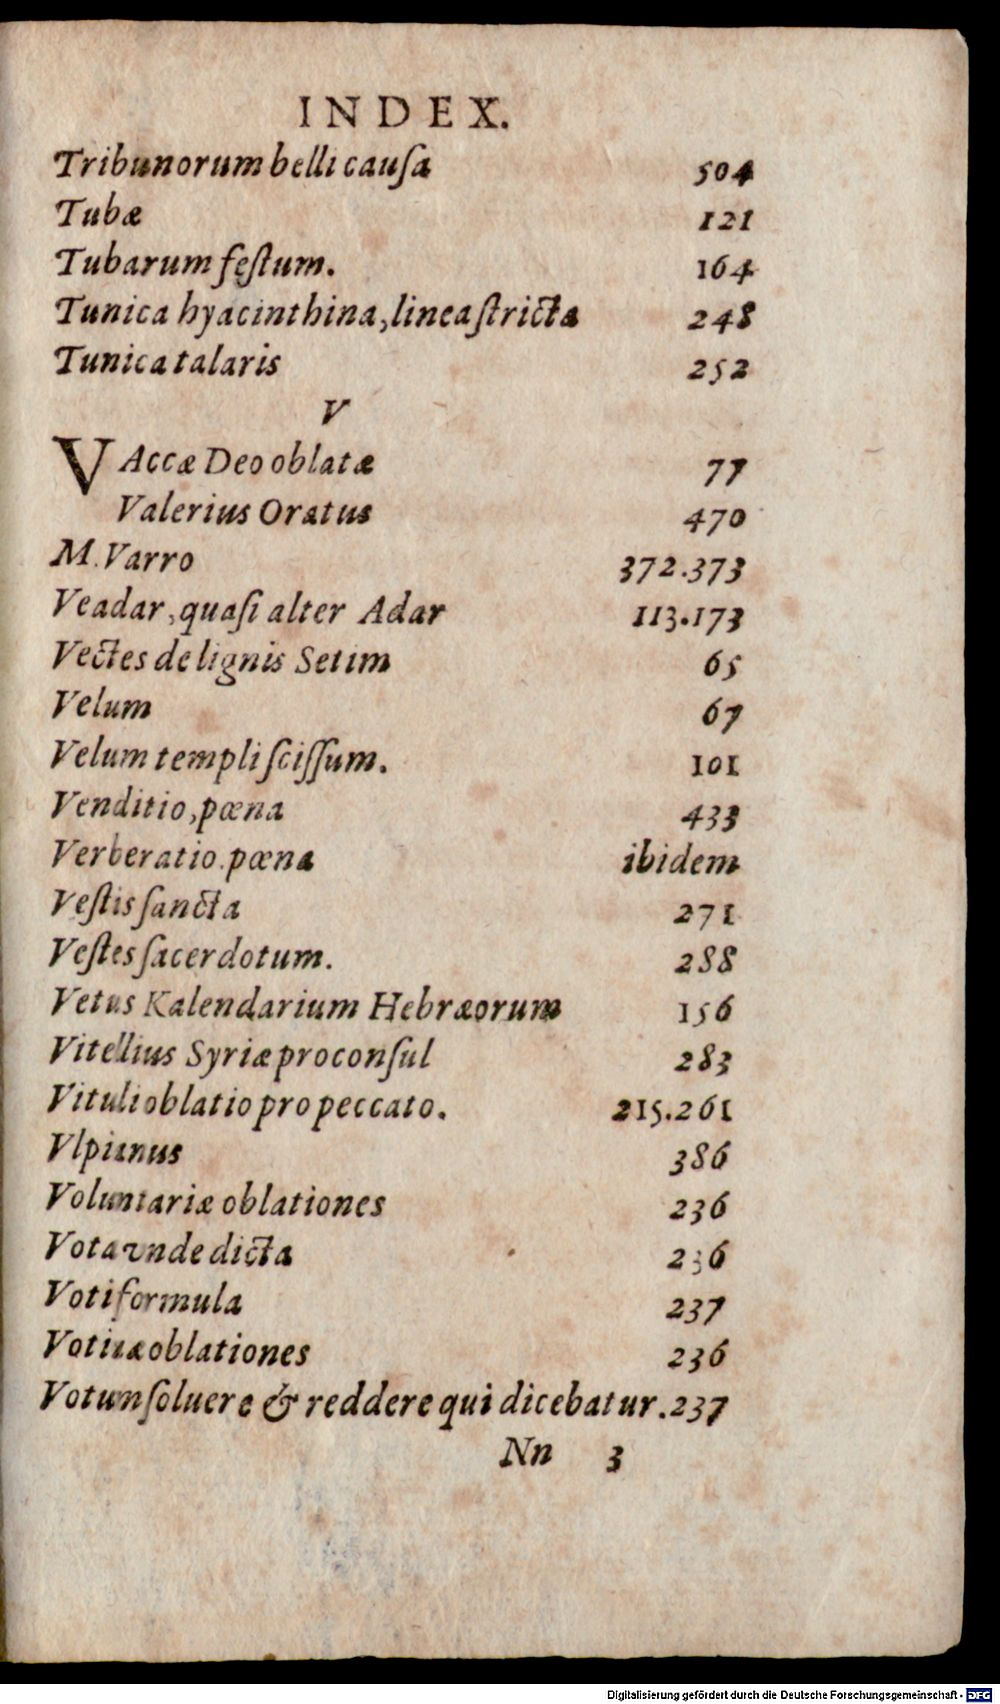 INDEX.
Tribunorum belli cauſa 504
Tubæ 121
Tubarum feſtum. 164
Tunica hyacinthina, linea ſtricta 248
Tunica talaris 252
V
VAccæ Deo oblatæ 77
Valerius Oratus 470
M. Varro 372.373
Veadar, quaſi alter Adar 113.173
Vectes de lignis Setim 65
Velum 67
Velum templi ſciſſum. 101
Venditio, pœna 433
Verberatio. pœna ibidem
Veſtis ſancta 271
Veſtes ſacerdotum. 288
Vetus Kalendarium Hebræorum 156
Vitellius Syriæ proconſul 283
Vituli oblatio pro peccato. 215.261
Vlpianus 386
Voluntariæ oblationes 236
Vota vnde dicta 236
Voti formula 237
Votiuæ oblationes 236
Votum ſoluere & reddere qui dicebatur. 237
Nn 3
Digitalisierung gefördert durch die Deutsche Forschungsgemeinschaft - DFG